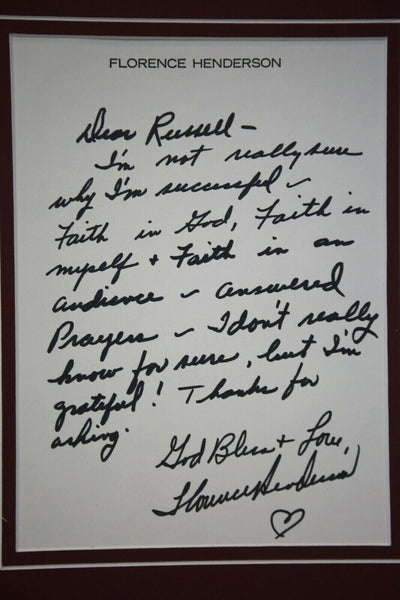 FLORENCE HENDERSON
Dear Russell –
I'm not really sure
why I'm successful –
Faith in God, Faith in
myself + Faith in an
audience – answered
Prayers – I don't really
know for sure, but I'm
grateful! Thanks for
asking.
God Bless + Love,
Florence Henderson